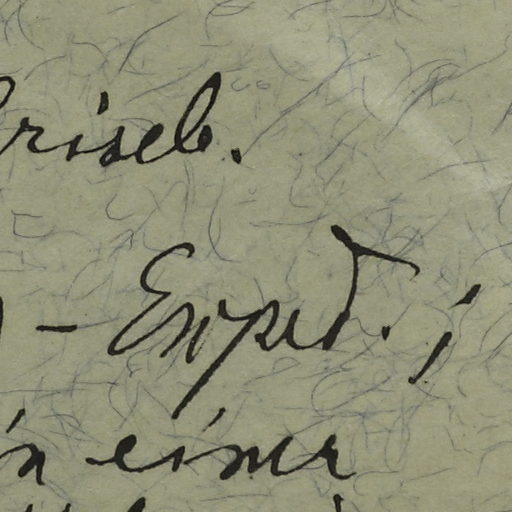 riseb.
- Exped.;
in einer